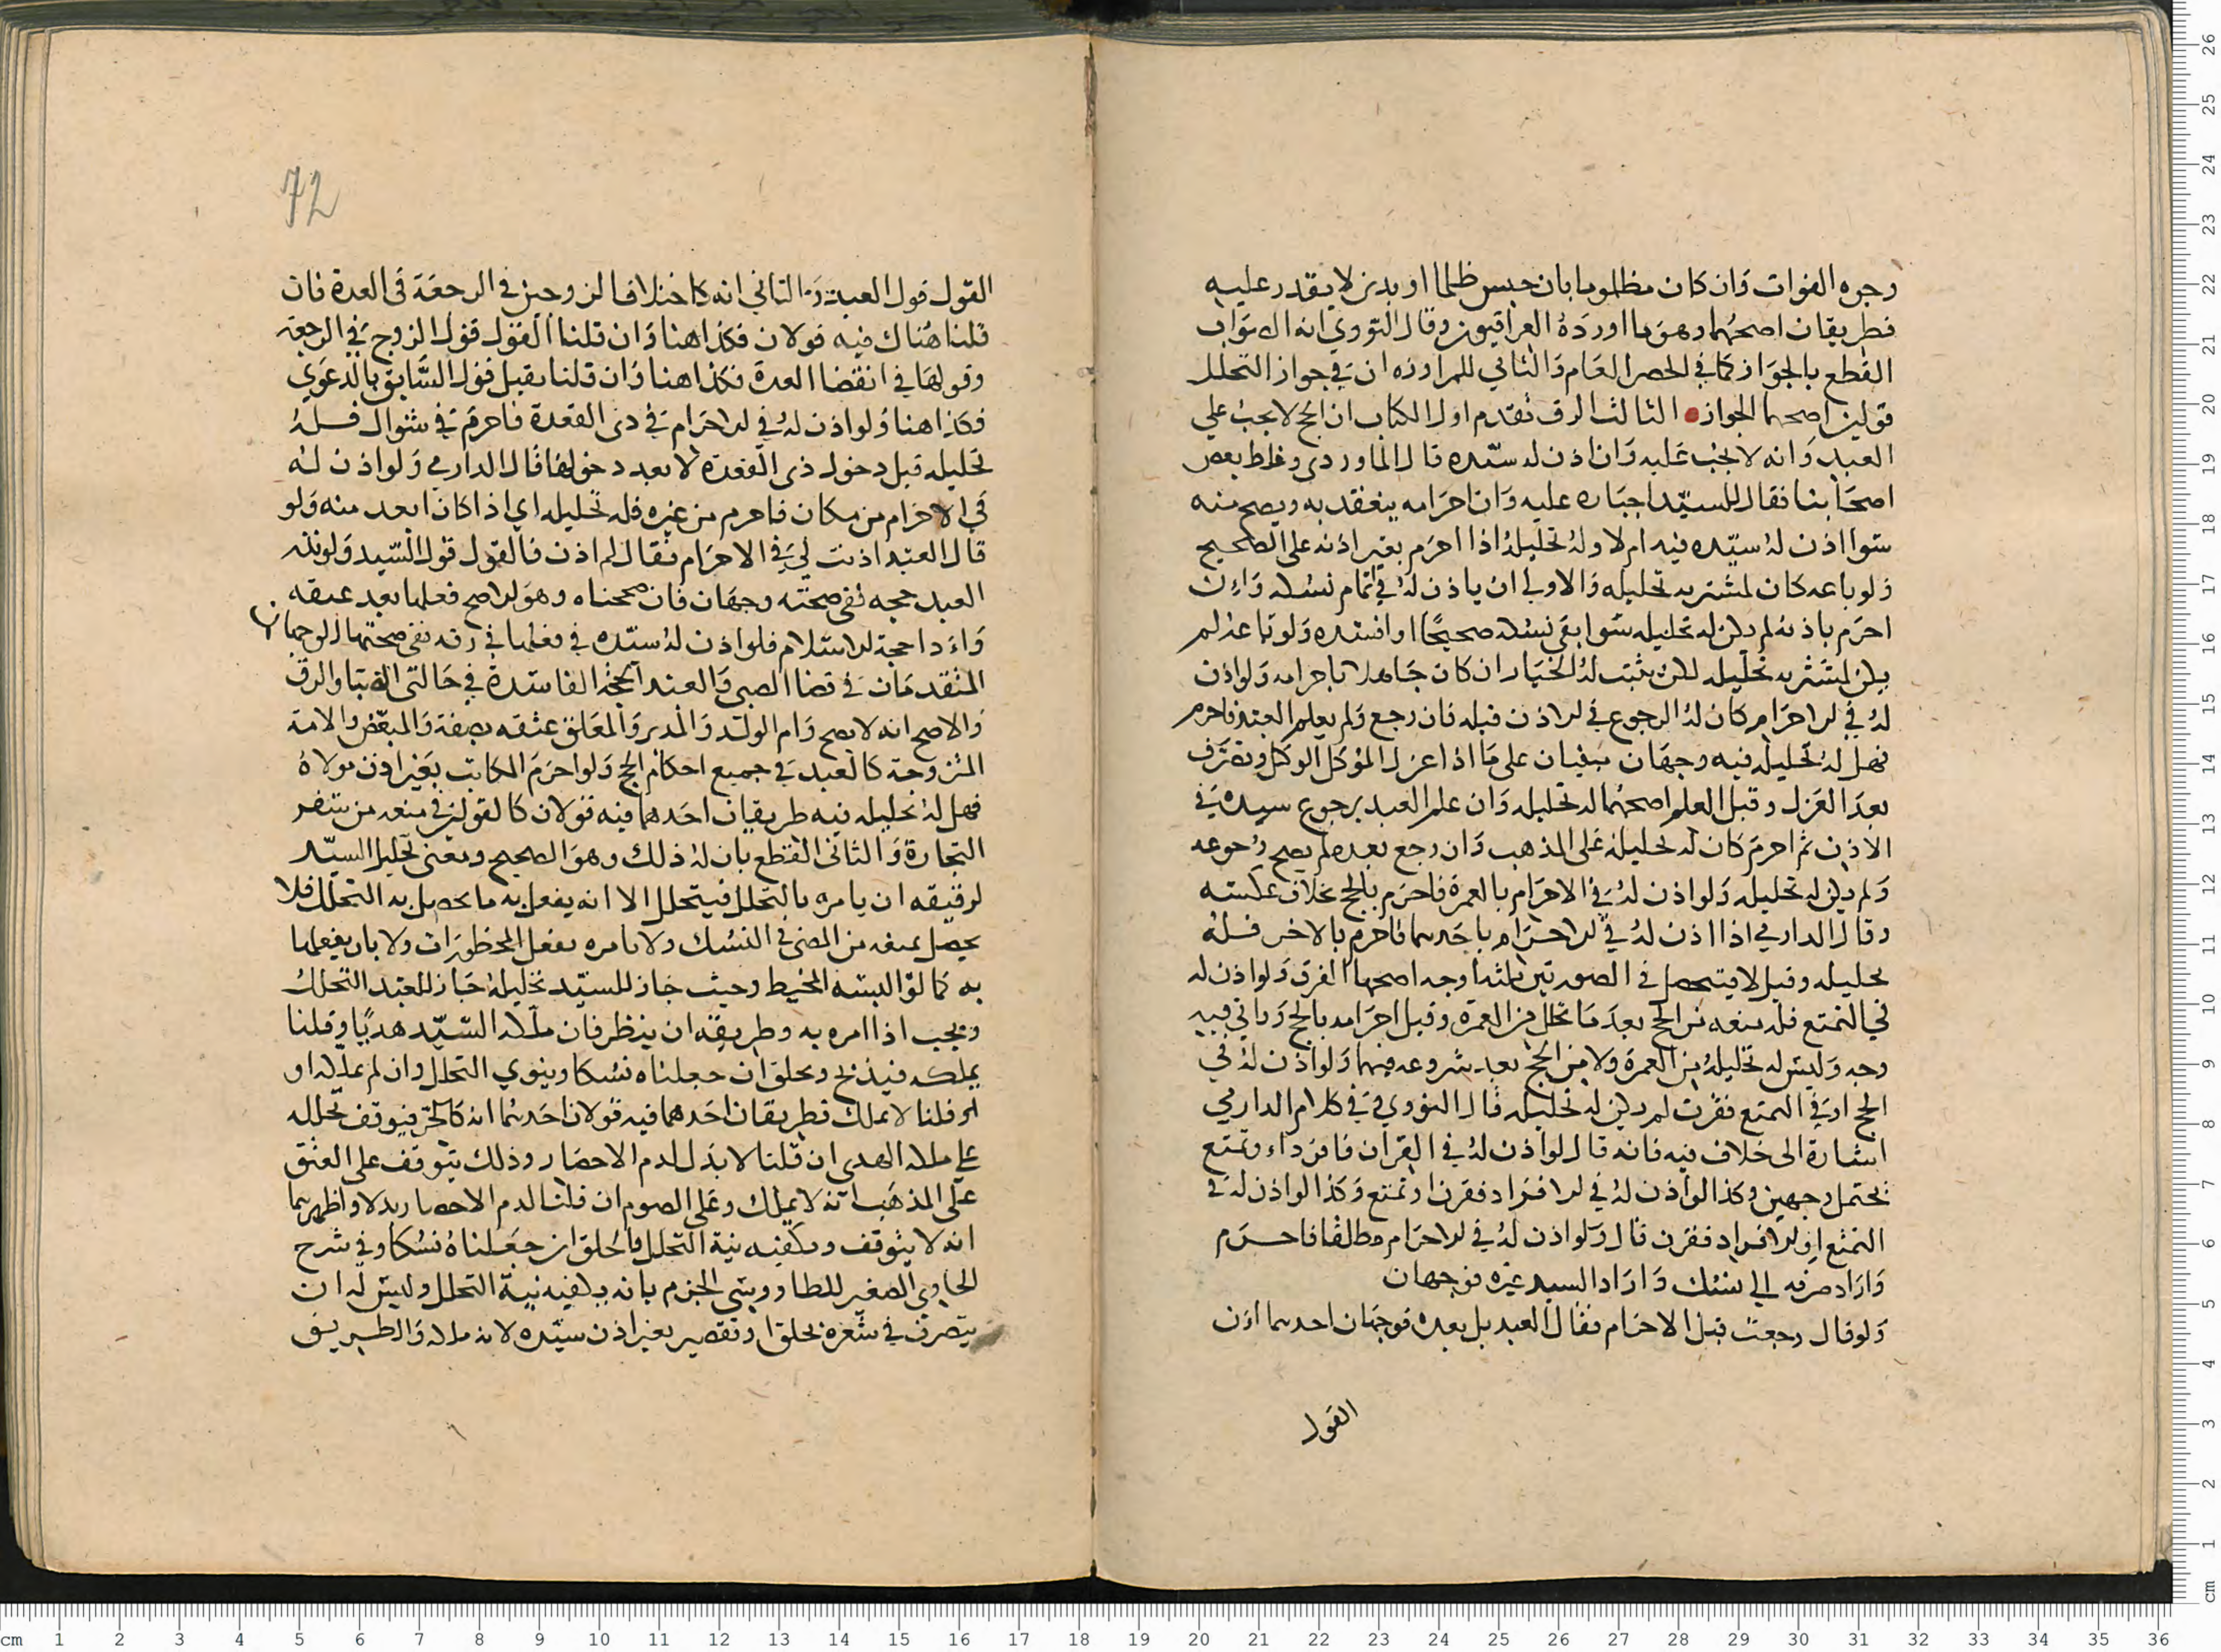 وجوه الفوات وان كان مظلوما بان حبس ظلما او بدين لا يقدر عليه
فطريقان اصحهما وهو ما اورده العراقيون وقال النووي انه الصواب
القطع بالجواز كما في الحصر العام والثاني للمراوزه ان في جواز التحلل
قولين اصحهما الجواز الثالث الرق تقدم اول الكتاب ان الحج لا يجب علي
العبد وانه لا يجب عليه وان اذن له سيده قال الماوردي وغلط بعض
اصحابنا فقال للسيد اجباره عليه وان احرامه ينعقد به ويصح منه
سوا اذن له سيده فيه ام لا وله تحليله اذا احرم بغير اذنه على الصحيح
ولو باعه كان لمشتريه تحليله والاولي ان ياذن له في اتمام نسكه وان
احرم باذنه لم يكن له تحليله سوا بقي نسكه صحيحا او افسده ولو باعه لم
يكن لمشتريه تحليله لكن يثبت له الخيار ان كان جاهلا باحرامه ولو اذن
له في الاحرام كان له الرجوع في الاذن قبله فان رجع ولم يعلم العبد فاحرم
فهل له تحليله فيه وجهان مبنيان على ما اذا عزل الموكل الوكيل وتصرف
بعد العزل وقبل العلم اصحهما له تحليله وان علم العبد برجوع سيده في
الاذن ثم احرم كان له تحليله على المذهب وان رجع بعده لم يصح رجوعه
ولم يكن له تحليله ولو اذن له في الاحرام بالعمرة فاحرم بالحج بخلاف عكسه
وقال الدارمي اذا اذن له في الاحرام باحدهما فاحرم بالاخر فله
تحليله وقيل لا فيتحصل في الصورتين ثلثة اوجه اصحها الفرق ولو اذن له
في التمتع فله منعه من الحج بعد ما تحلل من العمرة وقبل احرامه بالحج وياتي فيه
وجه وليس له تحليله من العمرة ولا من الحج بعد شروعه فيهما ولو اذن له في
الحج او في التمتع فقرن لم يكن له تحليله قال النووي وفي كلام الدارمي
اشارة الى خلاف فيه فانه قال لو اذن له في القران فافرد او تمتع
يحتمل وجهين وكذا لو اذن له في الافراد فقرن او تمتع وكذا لو اذن له في
التمتع او الافراد فقرن قال ولو اذن له في الاحرام مطلقا فاحرم
واراد صرفه الي نسك واراد السيد غيره فوجهان
ولو قال رجعت قبل الاحرام فقال العبد بل بعده فوجهان احدهما ان
القول
72
القول قول العبد والثاني انه كاختلاف الزوجين في الرجعة في العدة فان
قلنا هناك فيه قولان فكذا هنا وان قلنا القول قول الزوج في الرجعة
وقولها في انقضا العدة فكذا هنا وان قلنا يقبل قول السابق بالدعوي
فكذا هنا ولو اذن له في الاحرام في ذي القعدة فاحرم في شوال فله
تحليله قبل دخول ذي القعدة لا بعد دخولها قال الدارمي ولو اذن له
في الاحرام من مكان فاحرم من غيره فله تحليله اي اذا كان ابعد منه ولو
قال العبد اذنت لي في الاحرام فقال لم اذن فالقول قول السيد ولو نذر
العبد حجه ففي صحته وجهان فان صححناه وهو الاصح فعلها بعد عتقه
واد احجة الاسلام فلو اذن له سيده في فعلها في رقه ففي صحتها الوجهان
المتقدمان في قضا الصبي والعبد الحجة الفاسدة في حالتي الصبا والرق
والاصح انه لا يصح وام الولد والمدبر والمعلق عتقه بصفة والمبعض والامة
المزوجة كالعبد في جميع احكام الحج ولو احرم المكاتب بغير اذن مولاه
فهل له تحليله فيه طريقان احدهما فيه قولان كالقولين في منعه من سفر
التجارة والثاني القطع بان له ذلك وهو الصحيح ومعنى تحليل السيد
لرقيقه ان يامره بالتحلل فيتحلل لا انه يفعل به ما يحصل به التحلل فلا
يحصل بمنعه من المضي في النسك ولا بامره بفعل المحظورات ولا بان يفعلها
به كما لو البسه المخيط وحيث جاز للسيد تحليله جاز للعبد التحلل
ويجب اذا امره به وطريقه ان ينظر فان ملكه السيد هديا وقلنا
يملكه فيذبح ويحلق ان جعلناه نسكا وينوي التحلل وان لم يملكه او
او قلنا لا يملك فطريقان احدهما فيه قولان احدهما انه كالحر فيتوقف تحلله
علي ملك الهدي ان قلنا لا بدل لدم الاحصار وذلك يتوقف على العتق
على المذهب انه لا يملك وعلى الصوم ان قلنا لدم الاحصار بدلا واظهرهما
انه لا يتوقف ويكفيه نية التحلل والحلق ان جعلناه نسكا وفي شرح
الحاوي الصغير للطاووسي الجزم بانه يكفيه نية التحلل وليس له ان
يتصرف في شعره بحلق او تقصير بغير اذن سيده لانه ملكه والطريق